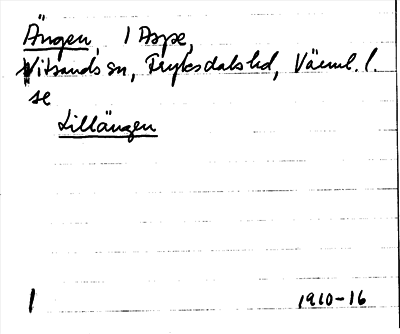 Ängen, 1 Aspe,
Vitsands sn, Fryksdals hd, Värml. l.
se
Lillängen
1 1910-16